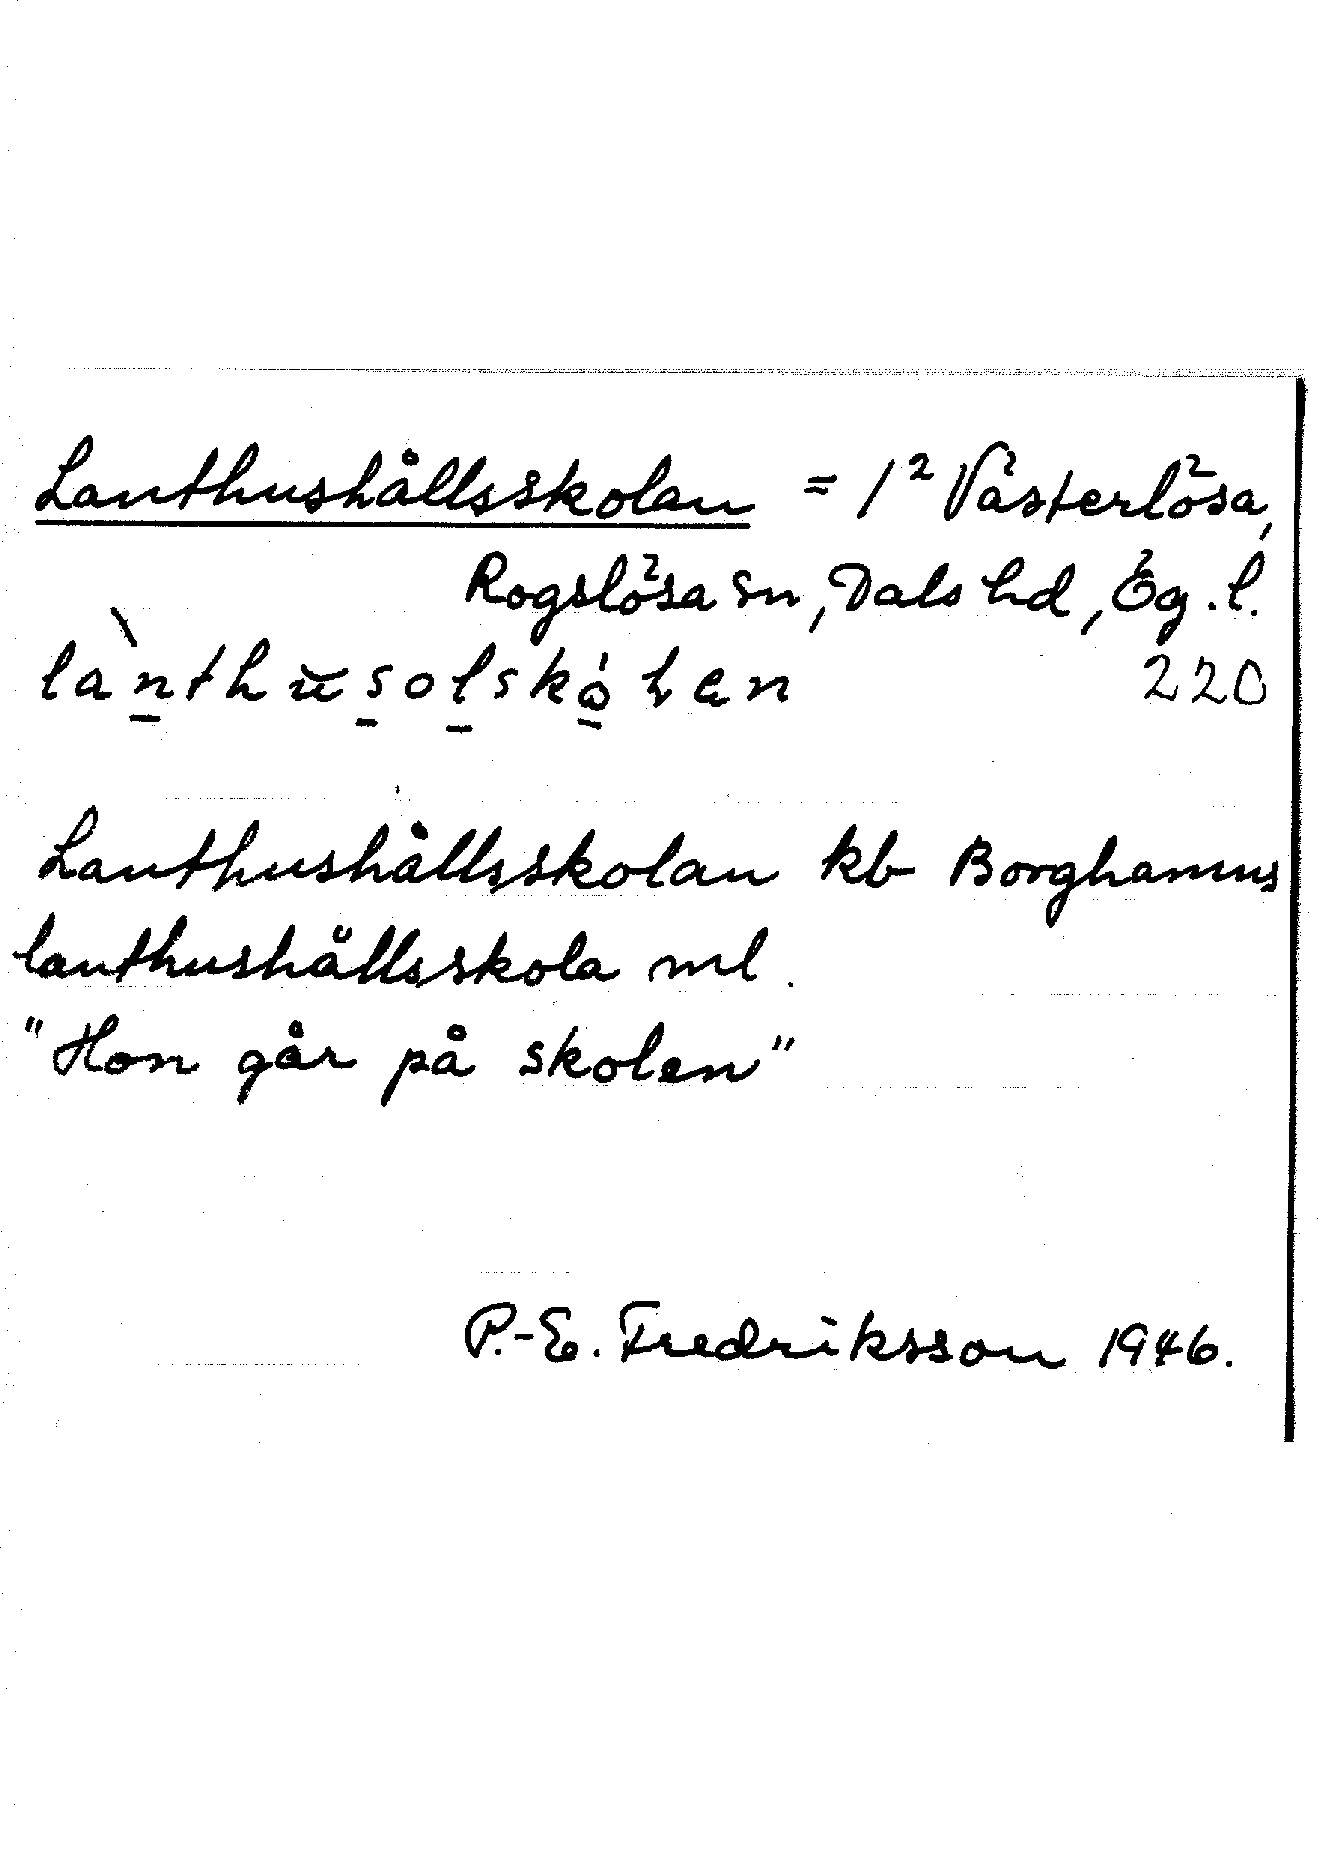 Lanthushållsskolan = 1² Västerlösa,
Rogslösa sn, Dals hd, Ög. l.
lànthusolskólen 220
Lanthushållsskolan kb Borghamns
lanthushållsskola ml.
"Hon går på skolen"
P.-E. Fredriksson 1946.